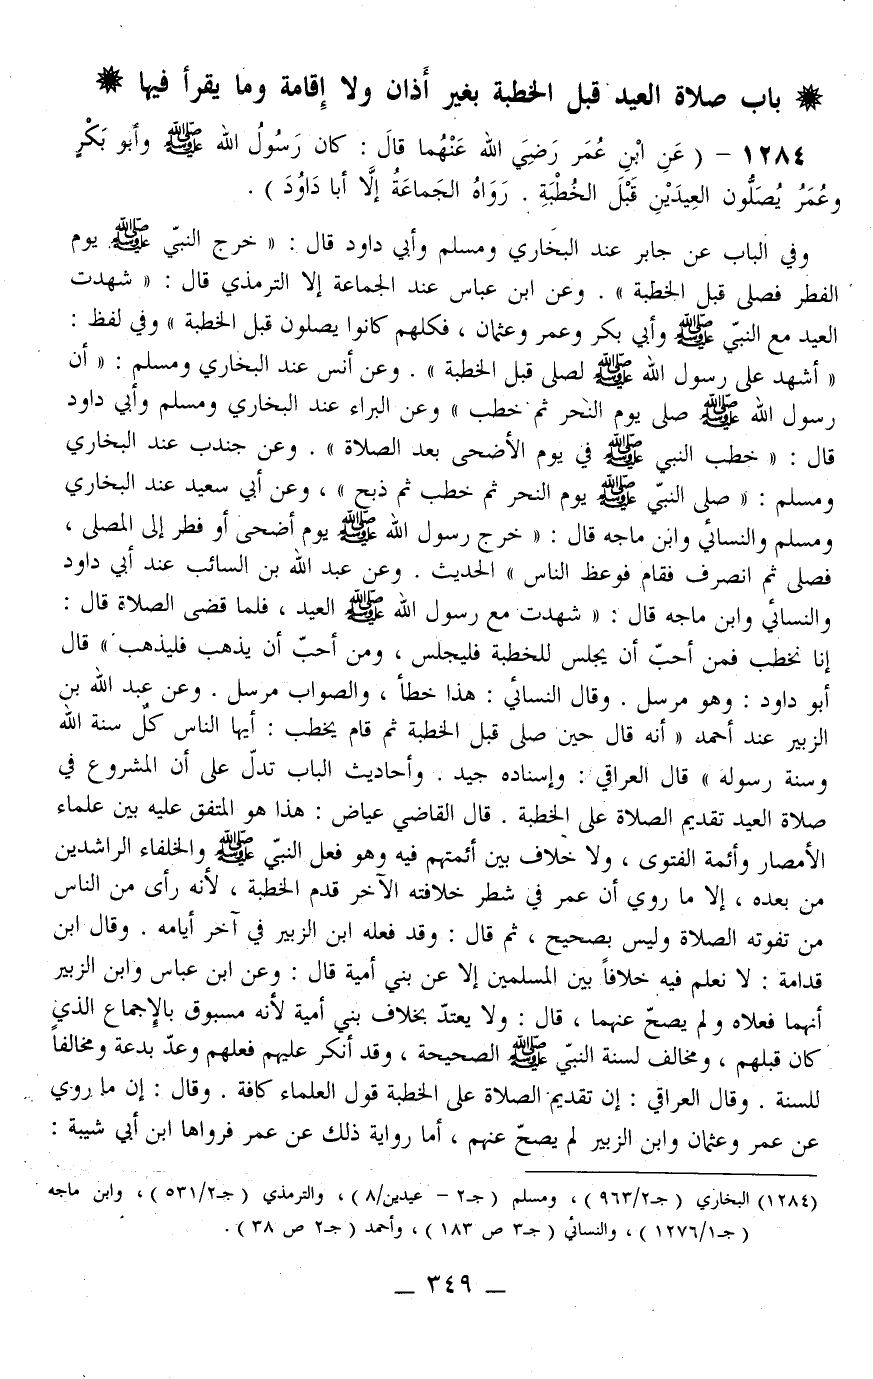 باب صلاة العيد قبل الخطبة بغير أَذان ولا إِقامة وما يقرأ فيها
١٢٨٤ – ( عَنِ ابْنِ عُمَر رَضِيَ الله عَنْهُما قالَ : كان رَسُولُ الله ﷺ وأبو بَكْرٍ
وعُمَرُ يُصَلُّون العِيدَيْنِ قَبْلَ الخُطْبَةِ . رَوَاهُ الجَماعَةُ إلَّا أبا دَاوُدَ ) .
وفي الباب عن جابر عند البخاري ومسلم وأبي داود قال : « خرج النبيّ ﷺ يوم
الفطر فصلى قبل الخطبة » . وعن ابن عباس عند الجماعة إلا الترمذي قال : « شهدت
العيد مع النبيّ ﷺ وأبي بكر وعمر وعثمان ، فكلهم كانوا يصلون قبل الخطبة » وفي لفظ :
« أشهد على رسول الله ﷺ لصلى قبل الخطبة » . وعن أنس عند البخاري ومسلم : « أن
رسول الله ﷺ صلى يوم النحر ثم خطب » وعن البراء عند البخاري ومسلم وأبي داود
قال : « خطب النبي ﷺ في يوم الأضحى بعد الصلاة » . وعن جندب عند البخاري
ومسلم : « صلى النبيّ ﷺ يوم النحر ثم خطب ثم ذبح » ، وعن أبي سعيد عند البخاري
ومسلم والنسائي وابن ماجه قال : « خرج رسول الله ﷺ يوم أضحى أو فطر إلى المصلى ،
فصلى ثم انصرف فقام فوعظ الناس » الحديث . وعن عبد الله بن السائب عند أبي داود
والنسائي وابن ماجه قال : « شهدت مع رسول الله ﷺ العيد ، فلما قضى الصلاة قال :
إنا نخطب فمن أحبّ أن يجلس للخطبة فليجلس ، ومن أحبّ أن يذهب فليذهب » قال
أبو داود : وهو مرسل . وقال النسائي : هذا خطأ ، والصواب مرسل . وعن عبد الله بن
الزبير عند أحمد « أنه قال حين صلى قبل الخطبة ثم قام يخطب : أيها الناس كلّ سنة الله
وسنة رسوله » قال العراقي : وإسناده جيد . وأحاديث الباب تدلّ على أن المشروع في
صلاة العيد تقديم الصلاة على الخطبة . قال القاضي عياض : هذا هو المتفق عليه بين علماء
الأمصار وأئمة الفتوى ، ولا خلاف بين أئمتهم فيه وهو فعل النبيّ ﷺ والخلفاء الراشدين
من بعده ، إلا ما روي أن عمر في شطر خلافته الآخر قدم الخطبة ، لأنه رأى من الناس
من تفوته الصلاة وليس بصحيح ، ثم قال : وقد فعله ابن الزبير في آخر أيامه . وقال ابن
قدامة : لا نعلم فيه خلافاً بين المسلمين إلا عن بني أمية قال : وعن ابن عباس وابن الزبير
أنهما فعلاه ولم يصحّ عنهما ، قال : ولا يعتدّ بخلاف بني أمية لأنه مسبوق بالإِجماع الذي
كان قبلهم ، ومخالف لسنة النبيّ ﷺ الصحيحة ، وقد أنكر عليهم فعلهم وعدّ بدعة ومخالفاً
للسنة . وقال العراقي : إن تقديم الصلاة على الخطبة قول العلماء كافة . وقال : إن ما روي
عن عمر وعثمان وابن الزبير لم يصحّ عنهم ، أما رواية ذلك عن عمر فرواها ابن أبي شيبة :
(١٢٨٤) البخاري ( جـ٩٦٣/٢ ) ، ومسلم ( جـ٢ – عيدين/٨ ) ، والترمذي ( جـ٥٣١/٢ ) ، وابن ماجه
( جـ١٢٧٦/١ ) ، والنسائي ( جـ٣ ص ١٨٣ ) ، وأحمد ( جـ٢ ص ٣٨ ) .
– ٣٤٩ –